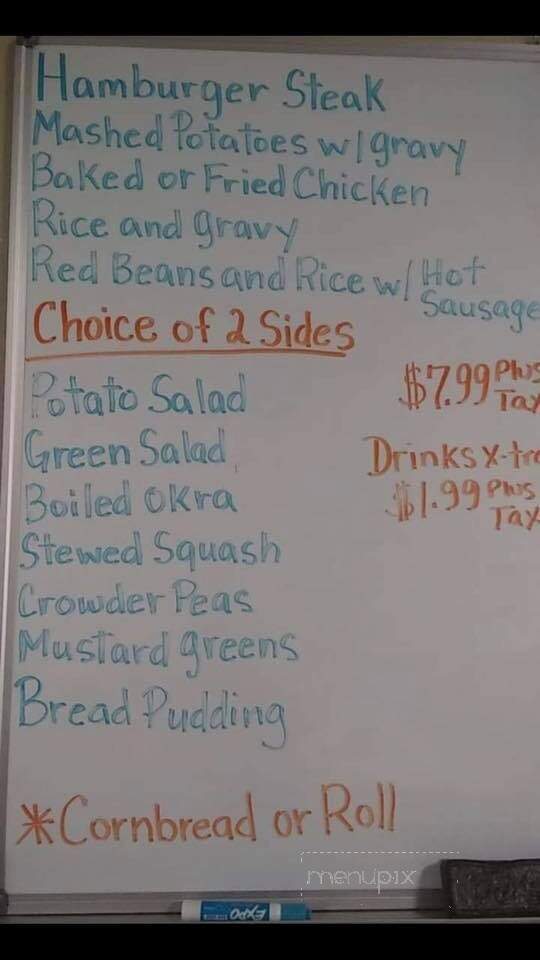 Hamburger Steak
Mashed Potatoes w/gravy
Baked or Fried Chicken
Rice and gravy
Red Beans and Rice w/ Hot
Sausage
Choice of 2 Sides
$7.99 Plus
Tax
Potato Salad
Green Salad
Drinks X-tra
$1.99 Plus
Tax
Boiled Okra
Stewed Squash
Crowder Peas
Mustard greens
Bread Pudding
*Cornbread or Roll
menupix
EXPO